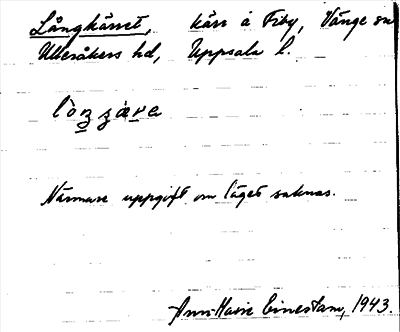 Långkärret, kärr å Fiby, Vänge sn
Ulleråkers hd, Uppsala l.
Närmare uppgift om läget saknas.
Ann-Marie Einestam, 1943.